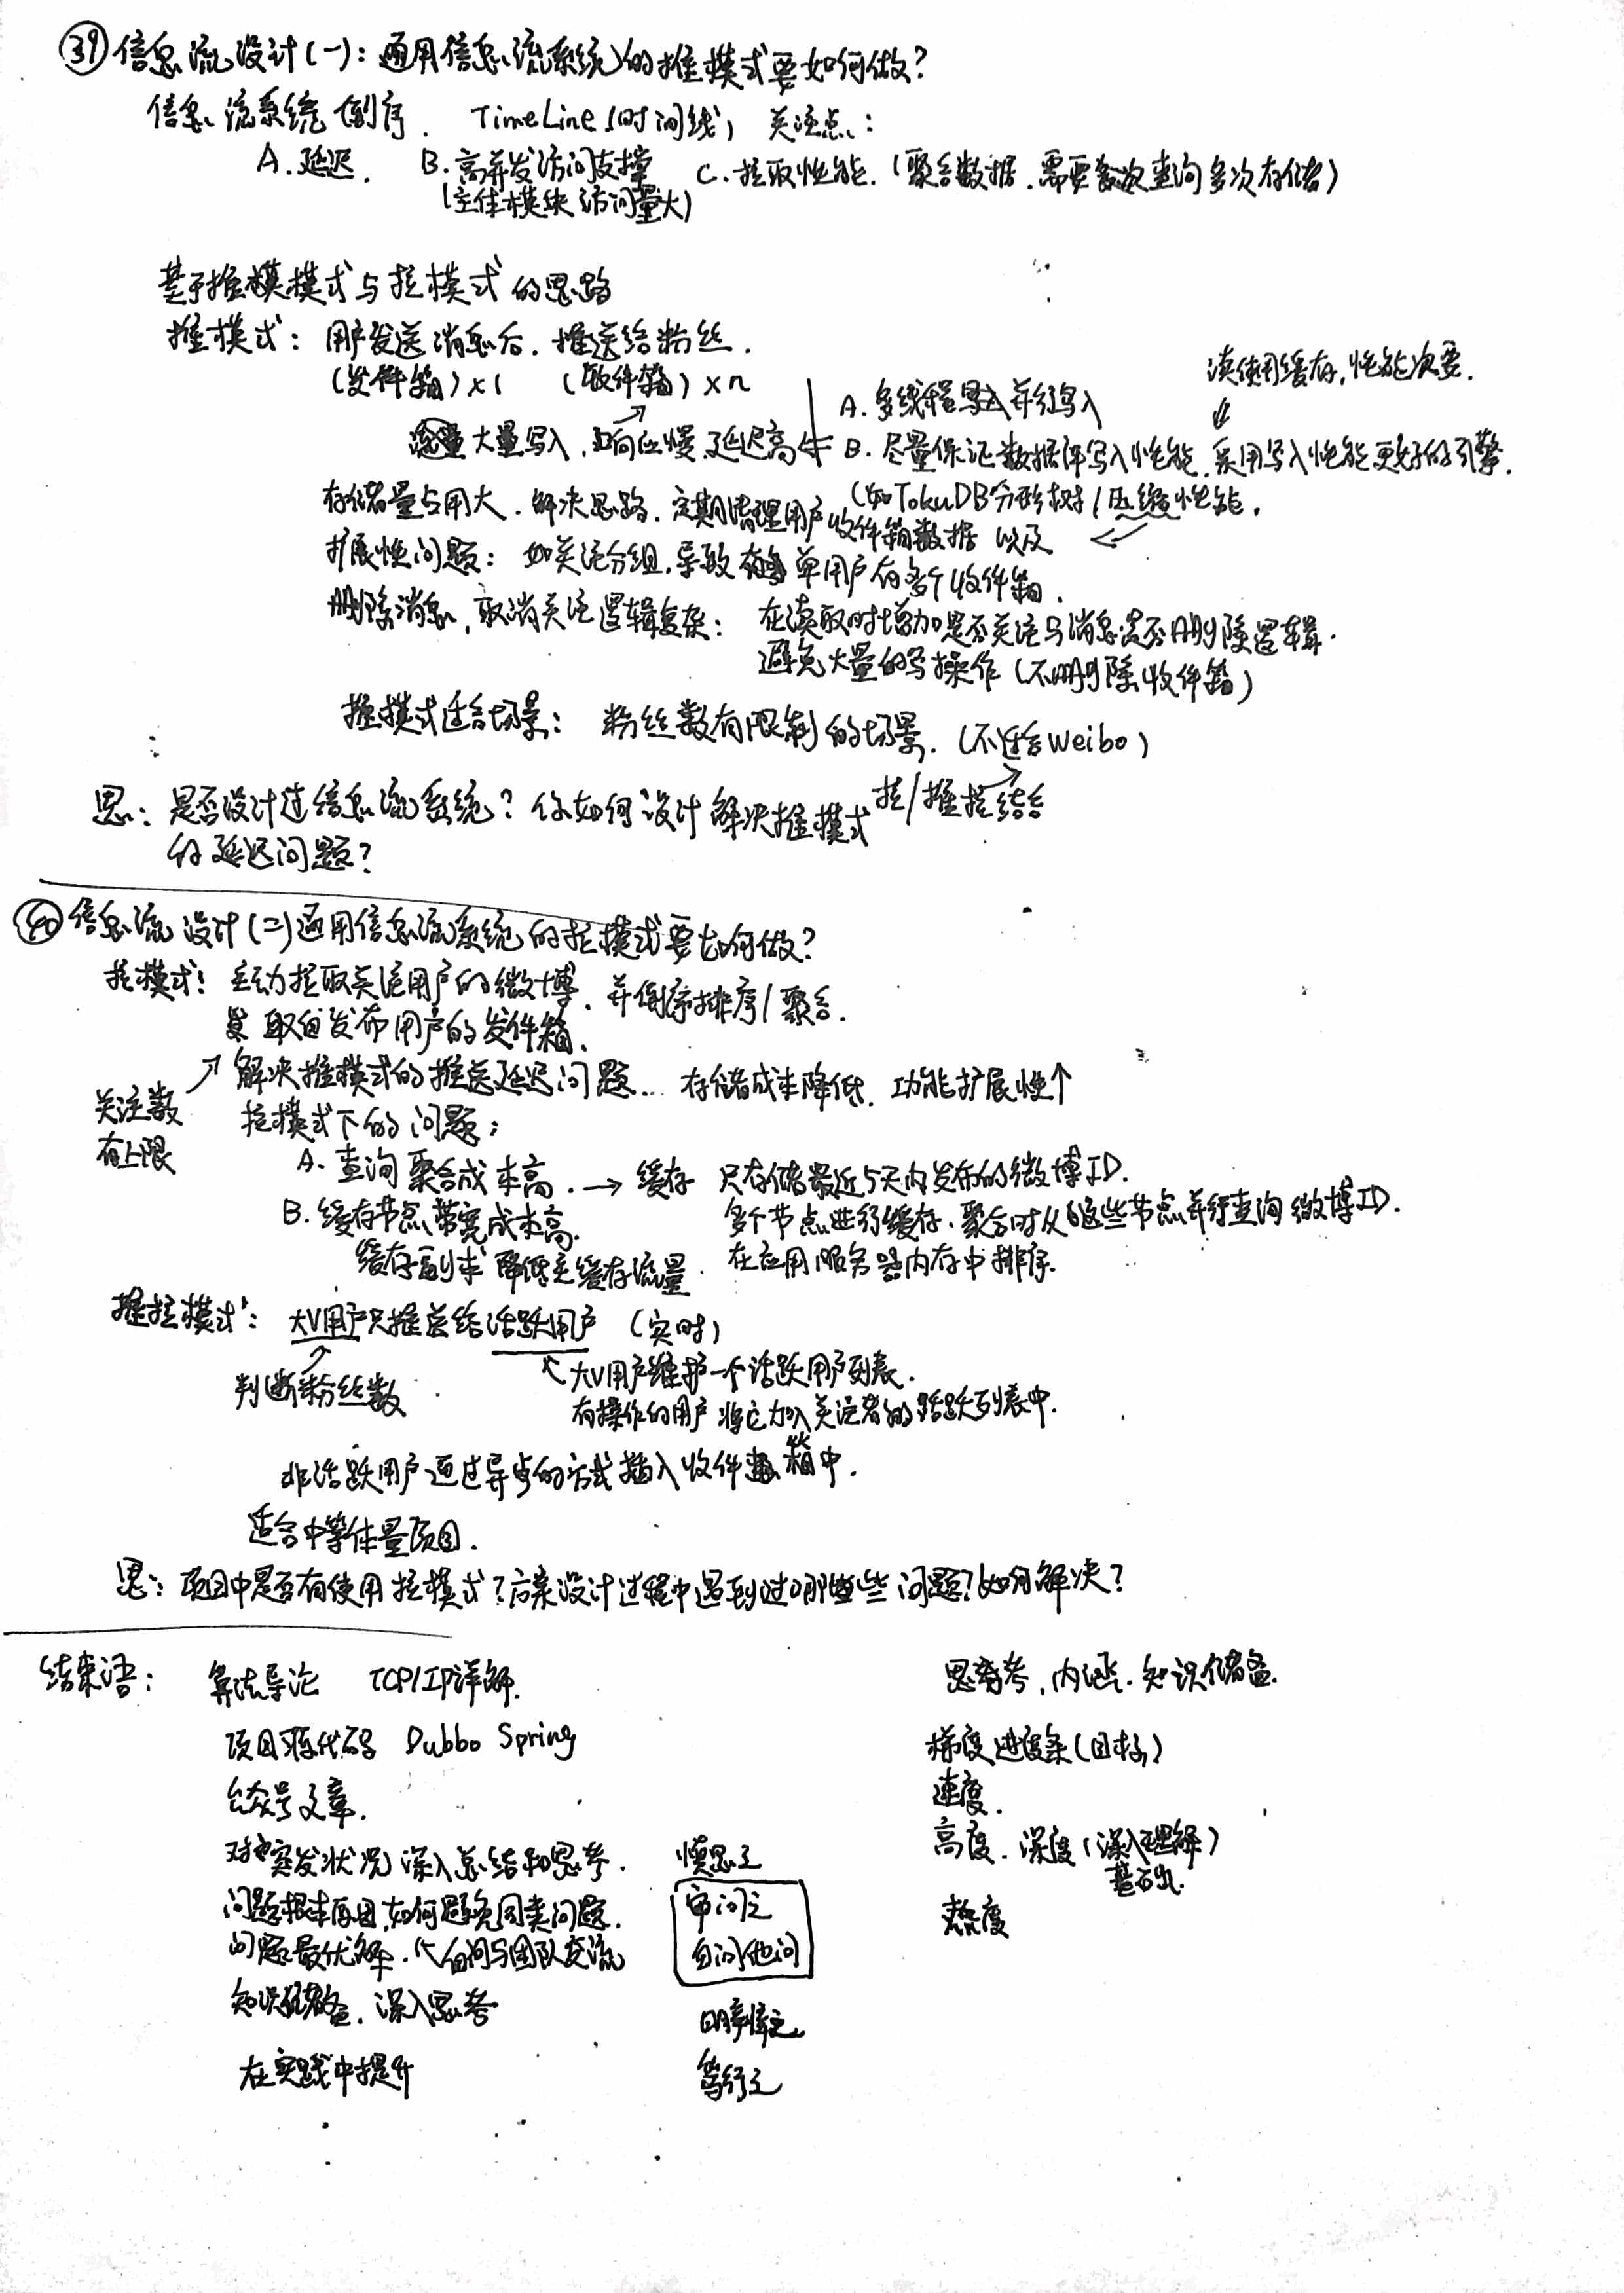 ㊴ 信息流设计(一)：通用信息流系统的推模式要如何做？
信息流系统 倒序. TimeLine(时间线) 关注点：
A.延迟. B.高并发访问支撑 C.拉取性能.(聚合数据.需要多次查询多次存储)
(主体模块访问量大)
基于推模模式与拉模式的思路
推模式：用户发送消息后.推送给粉丝.
(发件箱)×1 (收件箱)×n
读使用缓存,性能次要.
A.多线程写入并行写入
大量写入,响应慢,延迟高 ← B.尽量保证数据库写入性能,采用写入性能更好的引擎.
(如TokuDB分形树)压缩性能.
存储量占用大.解决思路.定期清理用户收件箱数据 以及
扩展性问题：如关注分组,导致 单用户有多个收件箱.
删除消息,取消关注逻辑复杂：在读取时增加是否关注与消息是否删除逻辑.
避免大量的写操作(不删除收件箱)
推模式适合场景：粉丝数有限制的场景.(不适合Weibo)
拉/推拉结合
思：是否设计过信息流系统？你如何设计解决推模式
的延迟问题？
㊵ 信息流设计(二)通用信息流系统的拉模式要如何做？
拉模式：主动拉取关注用户的微博.并倒序排序/聚合.
取自发布用户的发件箱.
↗ 解决推模式的推送延迟问题... 存储成本降低. 功能扩展性↑
关注数
有上限
拉模式下的问题：
A.查询聚合成本高.→ 缓存 只存储最近5天内发布的微博ID.
B.缓存节点带宽成本高. 多个节点进行缓存.聚合时从这些节点并行查询微博ID.
缓存副本 降低主缓存流量. 在应用服务器内存中排序.
推拉模式：大V用户只推送给活跃用户 (实时)
判断粉丝数
↖大V用户维护一个活跃用户列表.
有操作的用户将它加入关注者的活跃列表中.
非活跃用户通过异步的方式插入收件箱中.
适合中等体量项目.
思：项目中是否有使用拉模式？方案设计过程中遇到过哪些问题？如何解决？
结束语：算法导论 TCP/IP详解.
项目源代码 Dubbo Spring
公众号文章.
对突发状况 深入总结和思考.
问题根本原因,如何避免同类问题.
问题最优解.↖自问与团队交流
知识储备.深入思考
在实践中提升
慎思之
审问之
自问他问
明辨之
笃行之
思考,内涵.知识储备.
梯度 进度条(目标)
速度.
高度.深度(深入理解)
基石出.
热度